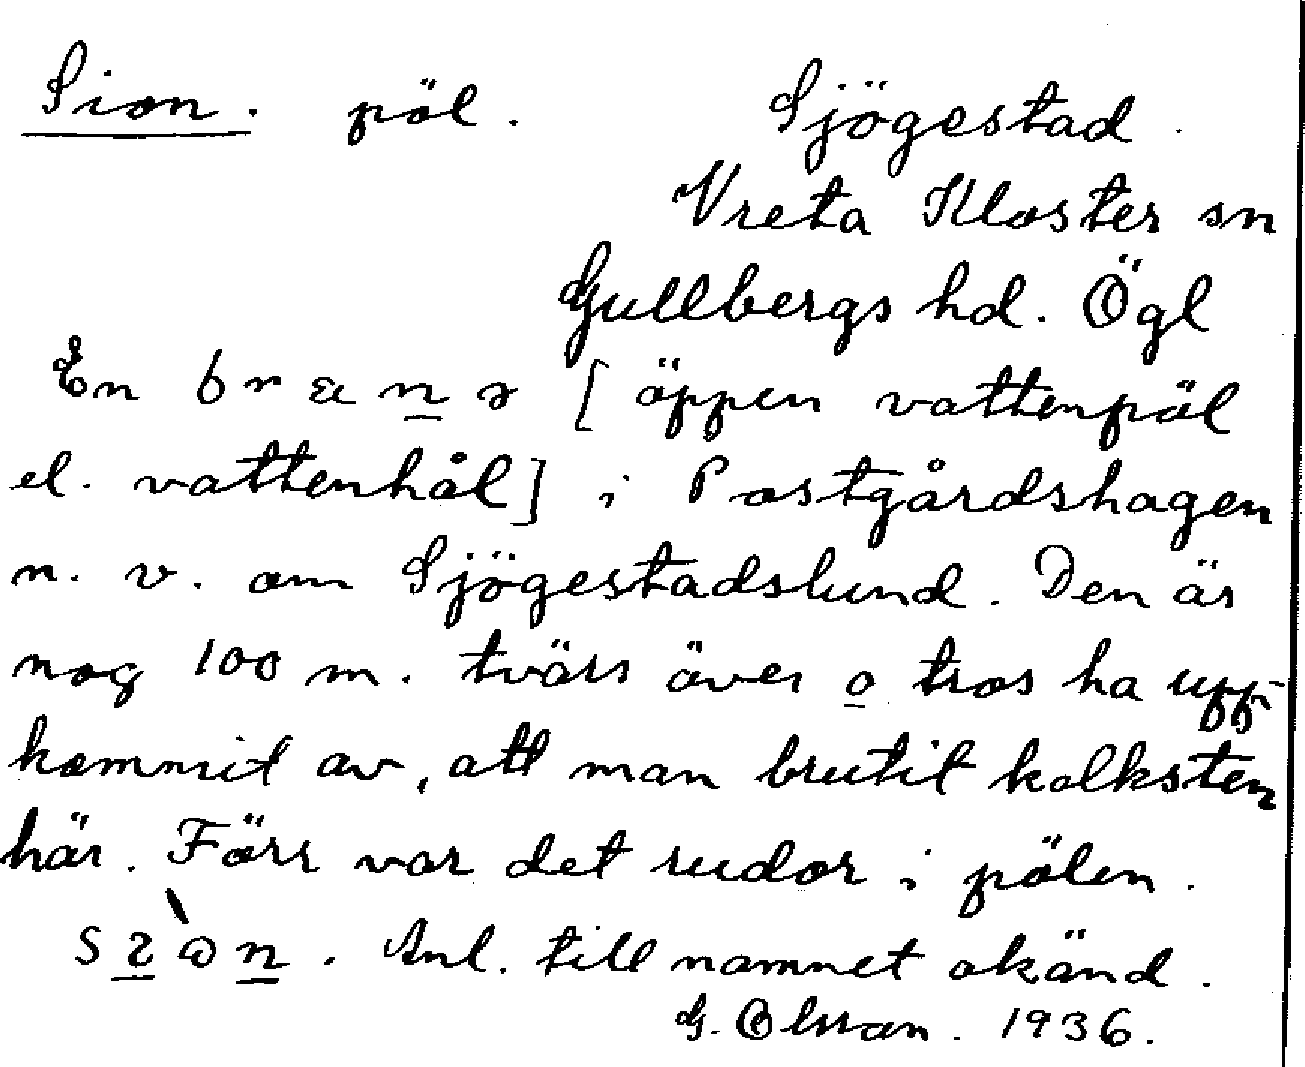 Sion. pöl. Sjögestad.
Vreta Kloster sn
Gullbergs hd. Ögl
En [öppen vattenpöl
el. vattenhål] i Postgårdshagen
n. v. om Sjögestadslund. Den är
nog 100 m. tvärs över o tros ha upp-
kommit av, att man brutit kalksten
här. Förr var det rudor i pölen.
Anl. till namnet okänd.
G. Olsson. 1936.